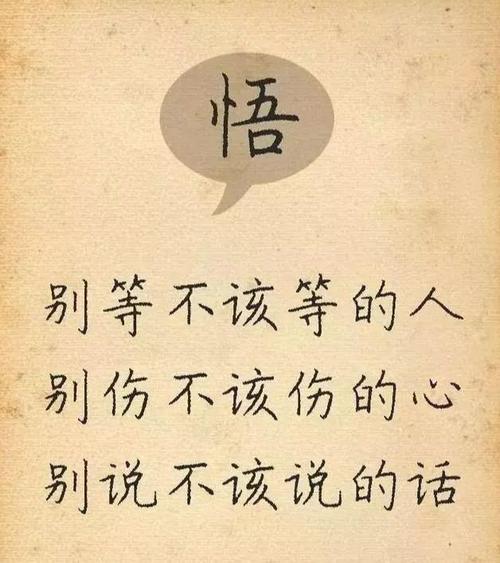 悟
别等不该等的人
别伤不该伤的心
别说不该说的话